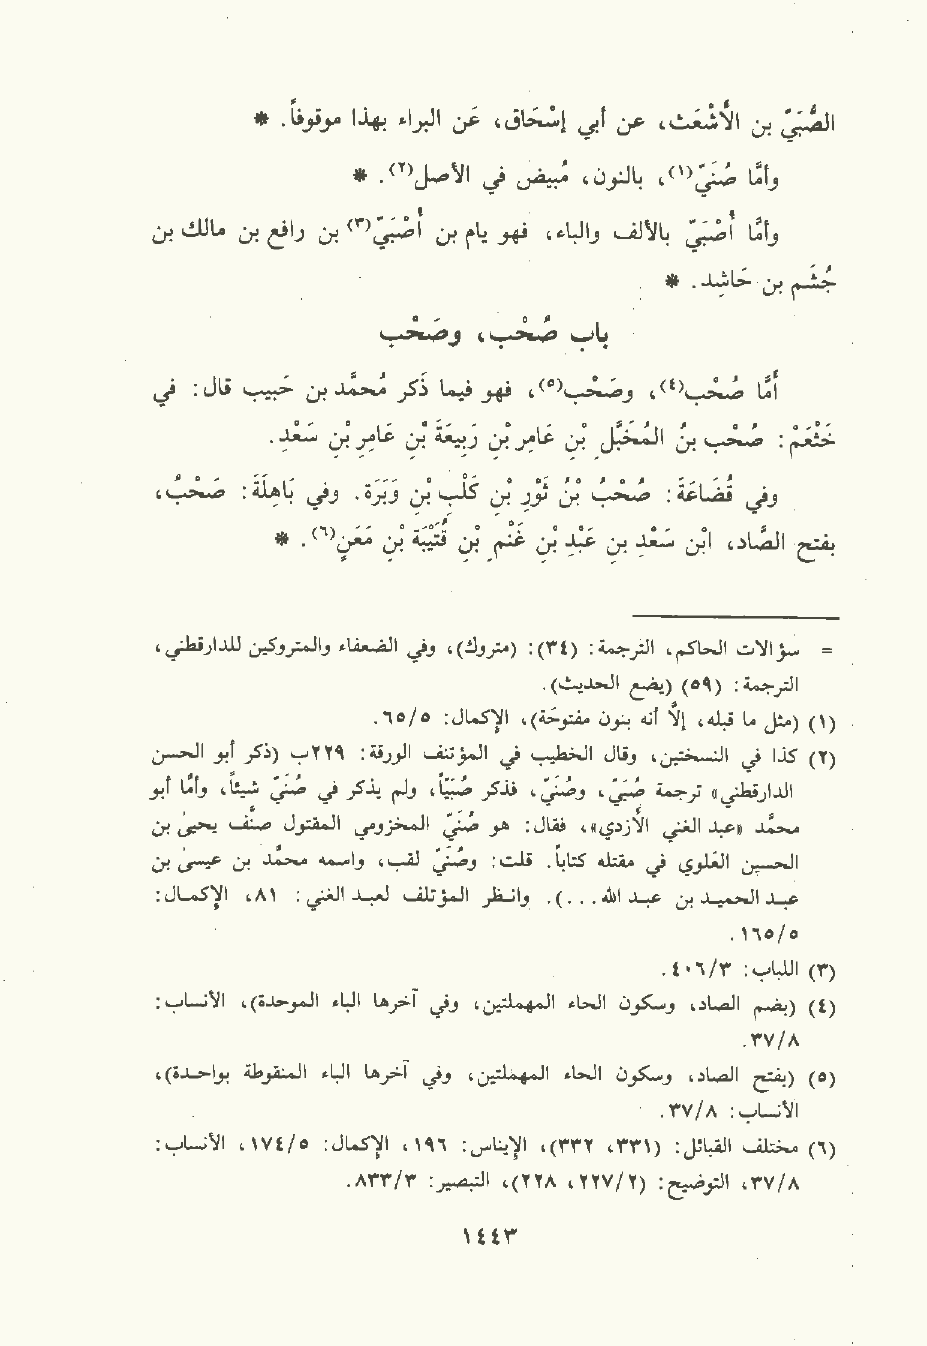 الصُّبَيّ بن الأَشْعَث، عن أبي إسْحَاق، عَن البراء بهذا موقوفاً. *
وأمَّا صُنَيّ(١)، بالنون، مُبيض في الأصل(٢). *
وأمَّا أُصْبَيّ بالألف والباء، فهو يام بن أُصْبَيّ(٣) بن رافع بن مالك بن
جُشَم بن حَاشِد. *
باب صُحْب، وصَحْب
أمَّا صُحْب(٤)، وصَحْب(٥)، فهو فيما ذكر مُحمَّد بن حَبيب قال: في
خَثْعَم: صُحْب بنُ المُخَبَّلِ بْنِ عَامِرِ بْنِ رَبِيعَةَ بْنِ عَامِرِ بْنِ سَعْدِ.
وفي قُضَاعَةَ: صُحْبُ بْنُ ثَوْرِ بْنِ كَلْبِ بْنِ وَبَرَة. وفي بَاهِلَةَ: صَحْبُ،
بفتح الصَّاد، ابْن سَعْدِ بن عَبْدِ بْنِ غَنْمِ بْنِ قُتَيْبَةَ بْنِ مَعَنٍ(٦). *
= سؤالات الحاكم، الترجمة: (٣٤): (متروك)، وفي الضعفاء والمتروكين للدارقطني،
الترجمة: (٥٩) (يضع الحديث).
(١) (مثل ما قبله، إلَّا أنه بنون مفتوحَة)، الإكمال: ٦٥/٥.
(٢) كذا في النسختين، وقال الخطيب في المؤتنف الورقة: ٢٢٩ب (ذكر أبو الحسن
الدارقطني» ترجمة صُبَيّ، وصُنَيّ، فذكر صُبَيّاً، ولم يذكر في صُنَيّ شيئاً، وأمَّا أبو
محمَّد «عبد الغني الأزدي»، فقال: هو صُنَيّ المخزومي المقتول صنْف يحيىٰ بن
الحسين العَلوي في مقتله كتاباً. قلت: وصُنَيّ لقب، واسمه محمَّد بن عيسىٰ بن
عبد الحميد بن عبد الله...). وانظر المؤتلف لعبد الغني: ٨١، الإكمال:
١٦٥/٥.
(٣) اللباب: ٤٠٦/٣.
(٤) (بضم الصاد، وسكون الحاء المهملتين، وفي آخرها الباء الموحدة)، الأنساب:
٣٧/٨.
(٥) (بفتح الصاد، وسكون الحاء المهملتين، وفي آخرها الباء المنقوطة بواحدة)،
الأنساب: ٣٧/٨.
(٦) مختلف القبائل: (٣٣١، ٣٣٢)، الإيناس: ١٩٦، الإكمال: ١٧٤/٥، الأنساب:
٣٧/٨، التوضيح: (٢٢٧/٢، ٢٢٨)، التبصير: ٨٣٣/٣.
١٤٤٣